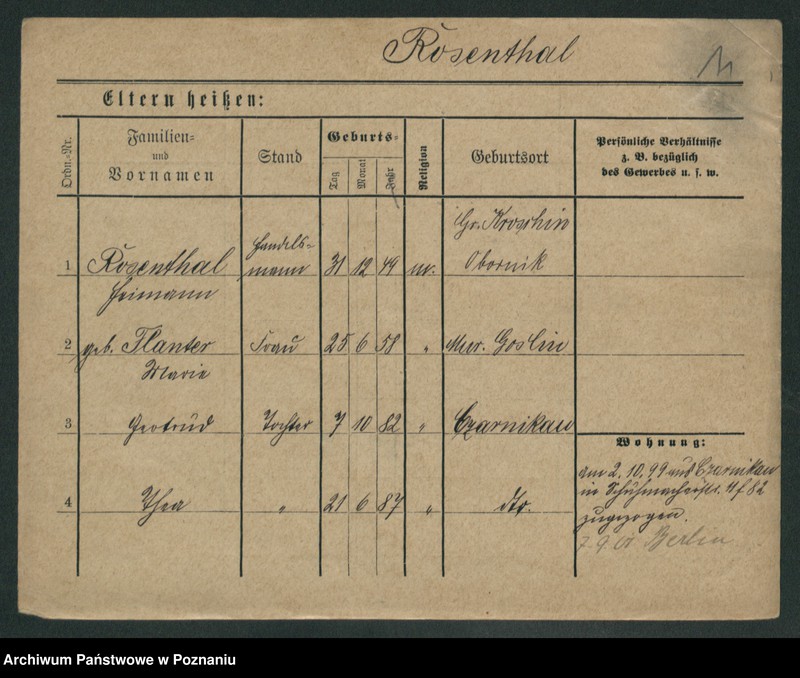 Rosenthal
Eltern heißen:
Ordn.-Nr.
Familien-
und
Vornamen
Stand
Geburts-
Tag
Monat
Jahr
Religion
Geburtsort
Persönliche Verhältnisse
z. B. bezüglich
des Gewerbes u. s. w.
Gr. Kroschin
1 Rosenthal Handels-
mann 31 12 49 Obornik
Heimann
2 geb. Flanter Frau 25 6 58 " Mur. Goslin
Marie
3 Gertrud Tochter 7 10 82 " Czarnikau
Wohnung:
am 2.10.99 aus Czarnikau
in
zugezogen.
4 Thea " 21 6 87 " dto.
Berlin
Archiwum Państwowe w Poznaniu